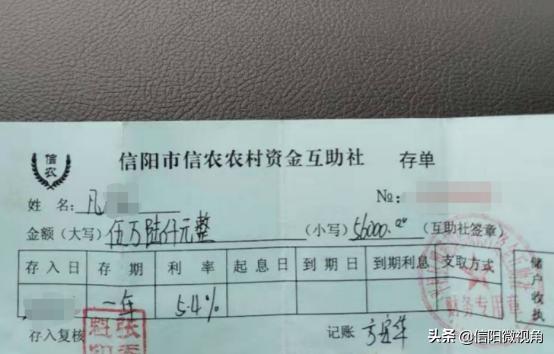 信农
信阳市信农农村资金互助社 存单
姓名:凡 №:
金额(大写)伍万陆仟元整 (小写)56000.00 (互助社签章)
存入日 存期 利率 起息日 到期日 到期利息 支取方式
一年 5.4%
储户收执
财务专用章
存入复核 记账
头条 @信阳微视角